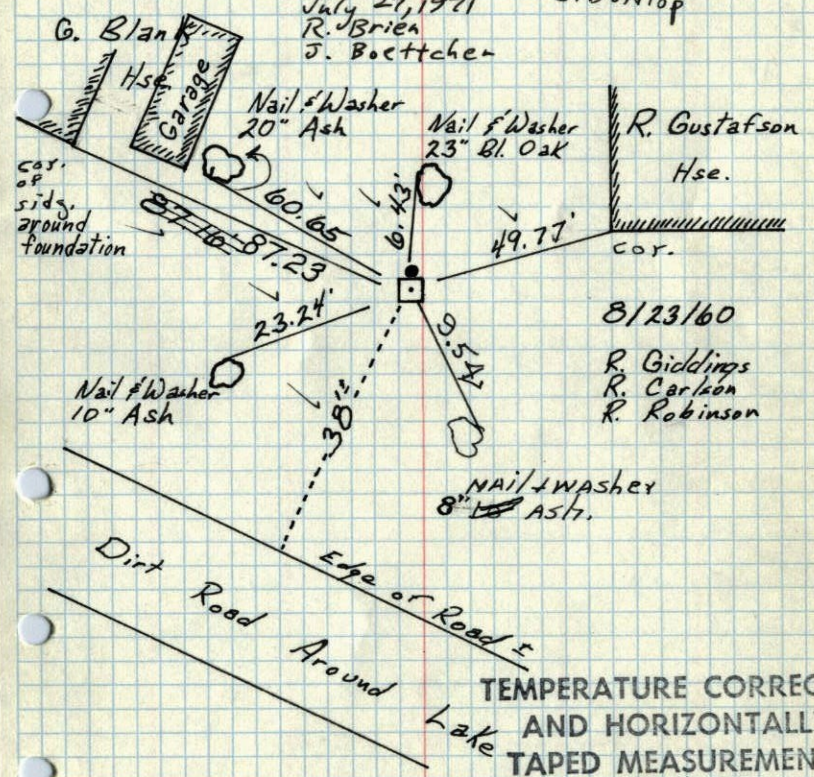 July 27, 1971
R. Brien
J. Boettcher
G. Blank
Hse
Garage
Nail & Washer
20" Ash
Nail & Washer
23" Bl. Oak
R. Gustafson
Hse.
cor.
cor.
of
sidg.
around
foundation
60.65
6.43'
49.77'
87.16'
87.23
23.24'
9.54'
38'±
8/23/60
R. Giddings
R. Carlson
R. Robinson
Nail & Washer
10" Ash
NAil & WASher
8" 10" ASh.
Edge of Road ±
Dirt Road Around Lake
TEMPERATURE CORREC
AND HORIZONTALL
TAPED MEASUREMEN